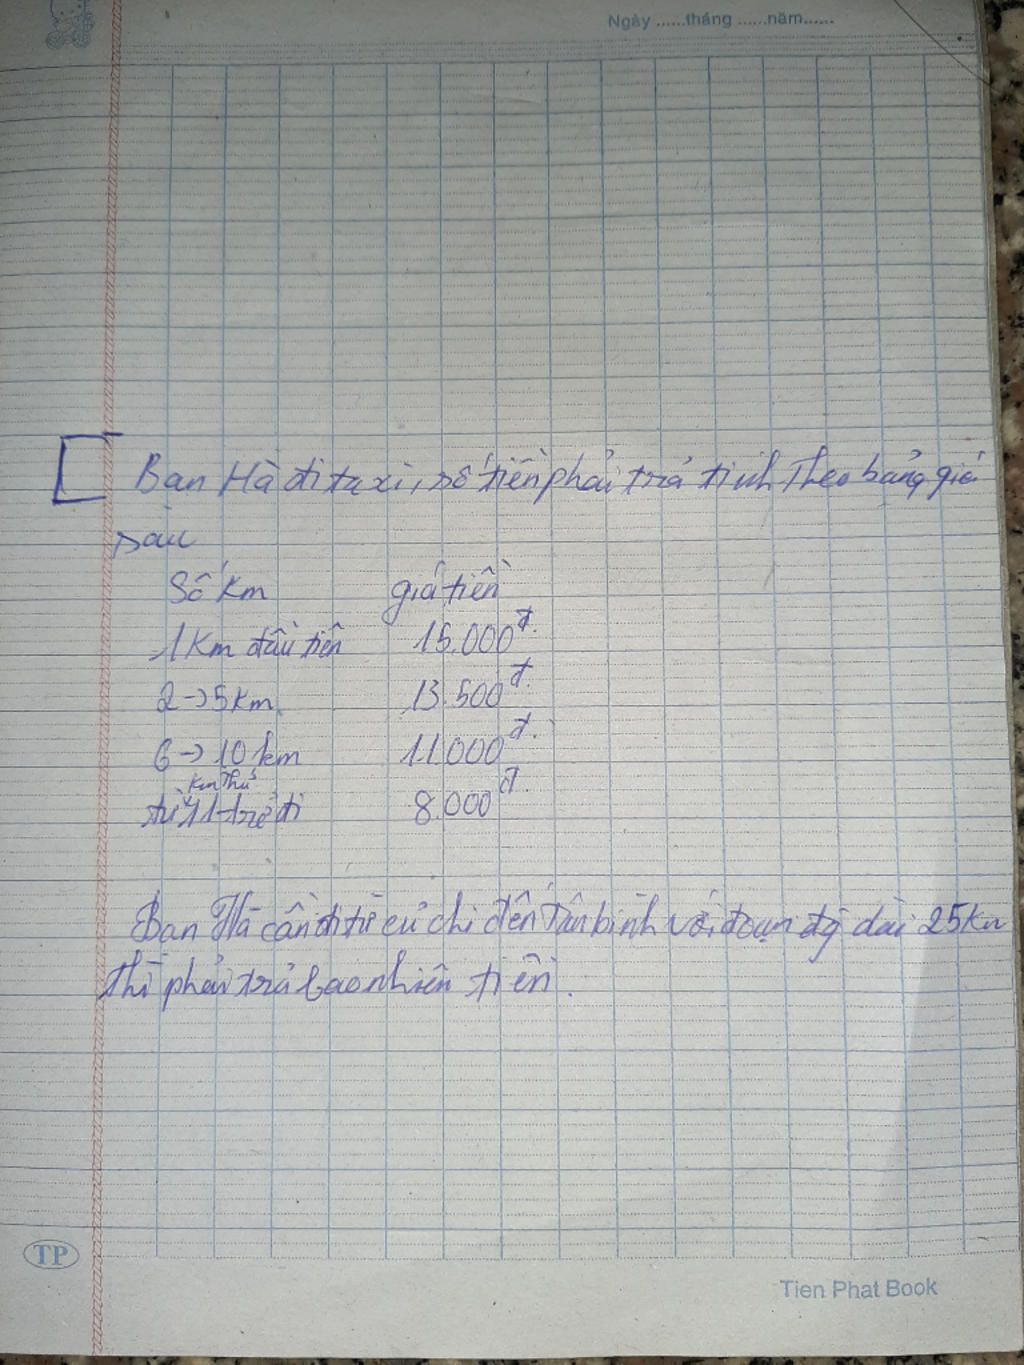 Ngày ......tháng ......năm......
Bạn Hà đi taxi, số tiền phải trả tính Theo bảng giá
sau
Số Km giá tiền
1 Km đầu tiên 15.000đ.
2→5 Km 13.500đ.
6→10 km 11.000đ.
km Thứ
từ 11 trở đi 8.000đ.
Bạn Hà cần đi từ củ chi đến Tân bình với đoạn đg dài 25Km
Thì phải trả bao nhiên tiền.
TP
Tien Phat Book